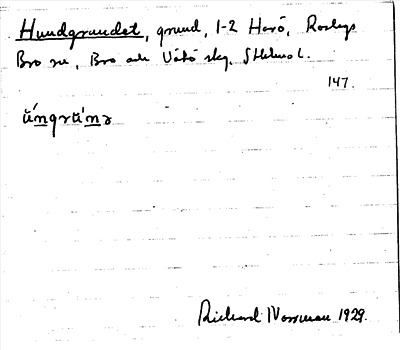 Hundgrundet, grund, 1-2 Harö, Roslags
Bro sn, Bro och Vätö skg, Sthlms l.
147.
Richard Norrman 1929.